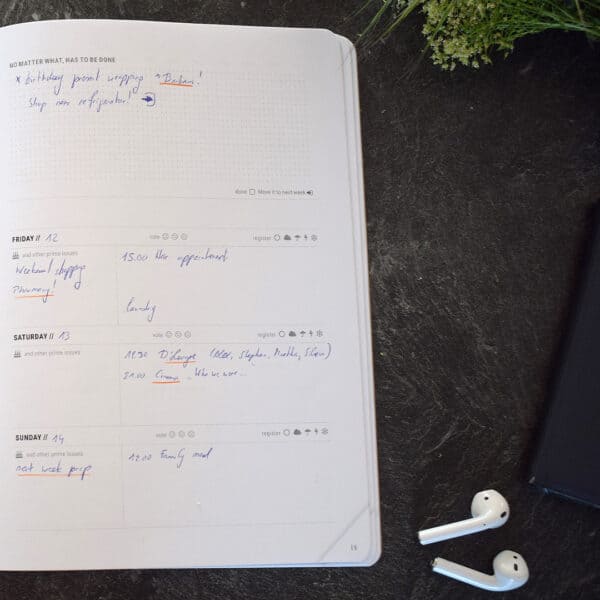 NO MATTER WHAT, HAS TO BE DONE
x birthday present wrapping !
Shop new refrigerator!
done Move it to next week
FRIDAY // 12 vote register
and other prime issues 15.00 appointment
Weekend shopping
Pharmacy!
laundry
SATURDAY // 13 vote register
and other prime issues
(Alex, Stephen,
21.00 Cinema
SUNDAY // 14 vote register
and other prime issues 12.00 Family meal
next week prep